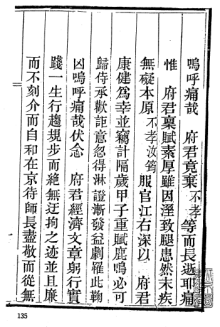 嗚呼痛哉 府君竟棄不孝等而長逝耶痛
惟 府君稟賦素厚雖因溼致腿患然末疾
無礙本原不孝汝筠服官江右深以 府君
康健為幸並竊計隔歲甲子重賦鹿鳴必可
歸侍承歡詎意忽得淋證漸發益劇罹此鞠
凶嗚呼痛哉伏念 府君經濟文章躬行實
踐一生行趨規步而絕無迂拘之迹並且廉
而不刻介而自和在京待師長盡敬而從無
135